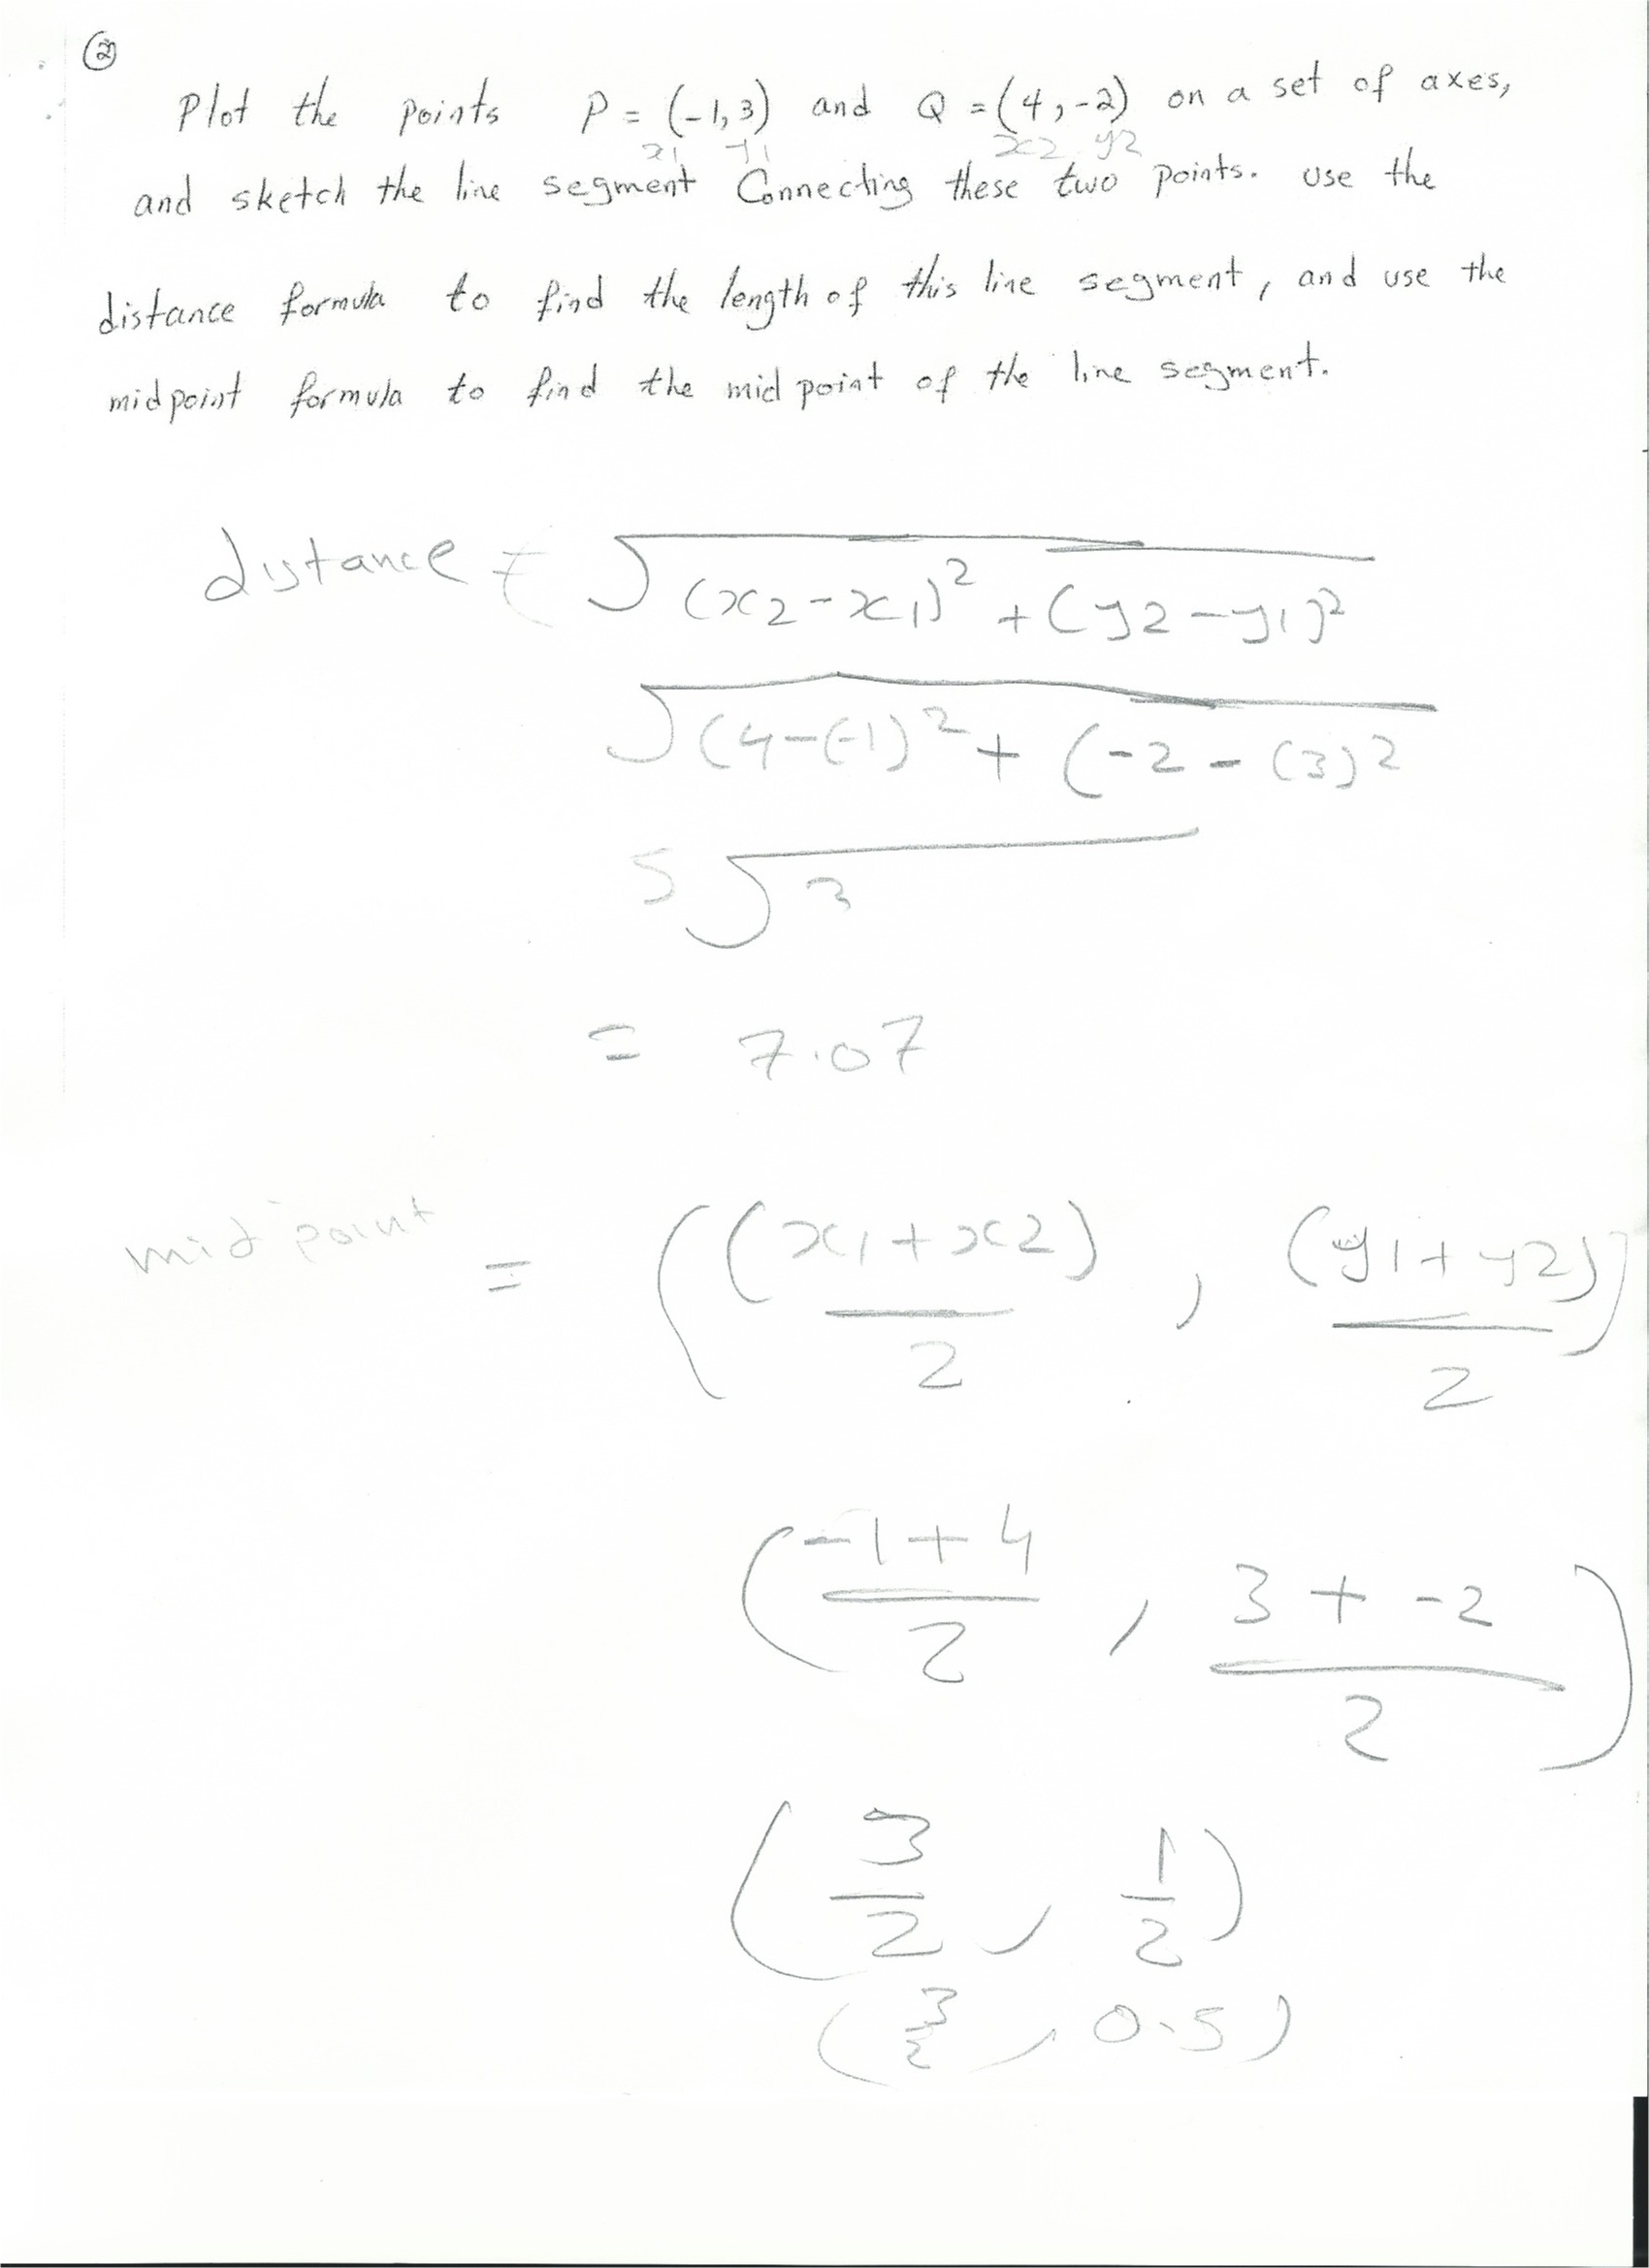 ②
Plot the points P = (-1, 3) and Q = (4, -2) on a set of axes,
x1 y1 x2 y2
and sketch the line segment Connecting these two points. use the
distance formula to find the length of this line segment, and use the
midpoint formula to find the mid point of the line segment.
distance = √(x2-x1)² + (y2-y1)²
√(4-(-1)² + (-2-(3)²
5√2
= 7.07
mid point = ((x1+x2)/2, (y1+y2)/2)
(-1+4/2, 3+-2/2)
(3/2, 1/2)
(3/2, 0.5)